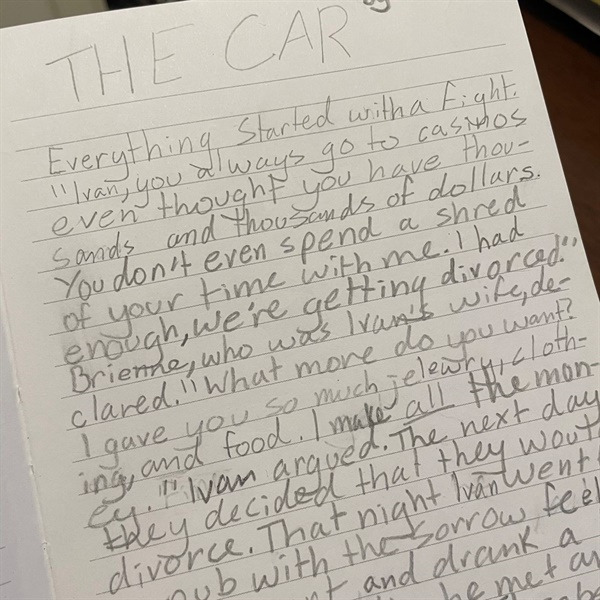 THE CAR
Everything started with a Fight.
"Ivan, you always go to casinos
even thought you have thou-
sands and thousands of dollars.
You don't even spend a shred
of your time with me. I had
enough, we're getting divorced."
Brienne, who was Ivan's wife, de-
clared. "What more do you want?
I gave you so much jelewry, cloth-
ing, and food. I make all the mon-
ey." Ivan argued. The next day
they decided that they wout
divorce. That night Ivan went
pub with the sorrow feel
and drank a
he met an